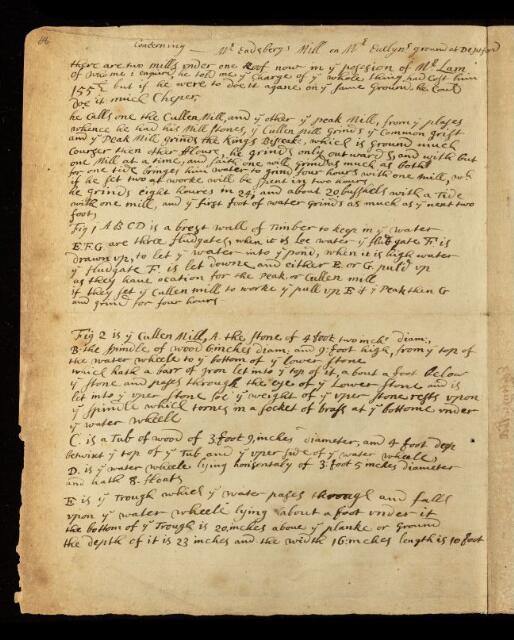 Concerning — Mr Eadsbery's Mill on Mr Evelyns ground at Depford
there are two mills under one Roof now in ye possesion of Mr Lam
of whome I enquire, he told me ye Charge of ye whole thing had Cost him
155£ but if he were to doe it agane on ye same Ground he Could
doe it much Cheper,
he calls one the Cullen Mill, and ye other ye peak Mill, from ye plases
whence he had his Mill stones, ye Cullen Mill Grinds ye Common grist
and ye Peak Mill grinds the Kings which is Ground much
Courser then other flour, he grinds only outwards, and with but
one Mill at a time, and saith one will grind as much as both
for one tide brings him water to grind four hours with one mill, wch
if he set two at worke will be spent in two hours
he grinds eight houres in 24, and about 20 bushels with a Tide
with one mill, and ye first foot of water grinds as much as ye next two
foots
Fig 1 A B C D is a brest wall of Timber to keep in ye water
E.F.G are three fludgates, when it is Loe water ye flud gate F. is
drawn up, to let ye water into ye pond, when it is high water
ye fludgate F. is let downe and either E or G. puld up
as they have ocation for the Peak or Cullen mill
if they set ye Cullen mill to worke ye pull up E if ye Peak then G
and grind for four hours
Fig 2 is ye Cullen Mill, A. the stone of 4 foot two inches diam:,
B. the spindle of wood 6 inches diam: and 9 foot high, from ye top of
the water wheele to ye bottom of ye lower stone
which hath a barr of Iron let into ye top of it, about a foot below
ye stone and pases through the eye of ye Lower stone and is
let into ye uper stone soe ye weight of ye uper stone rests upon
ye spindle which tornes in a socket of brass at ye bottome under
ye water wheele
C. is a Tub of wood of 3 foot 9 inches diameter, and 4 foot dep
betwixt ye top of ye Tub and ye uper side of ye water wheele
D. is ye water wheele lying horisontaly of 3 foot 5 inches diameter
and hath 8 floats
E is ye Trough which ye water pases through and falls
upon ye water wheele lying about a foot under it
the bottom of ye Trough is 20 inches above ye planke or Ground
the depth of it is 23 inches and the width 16 inches length is 10 foot